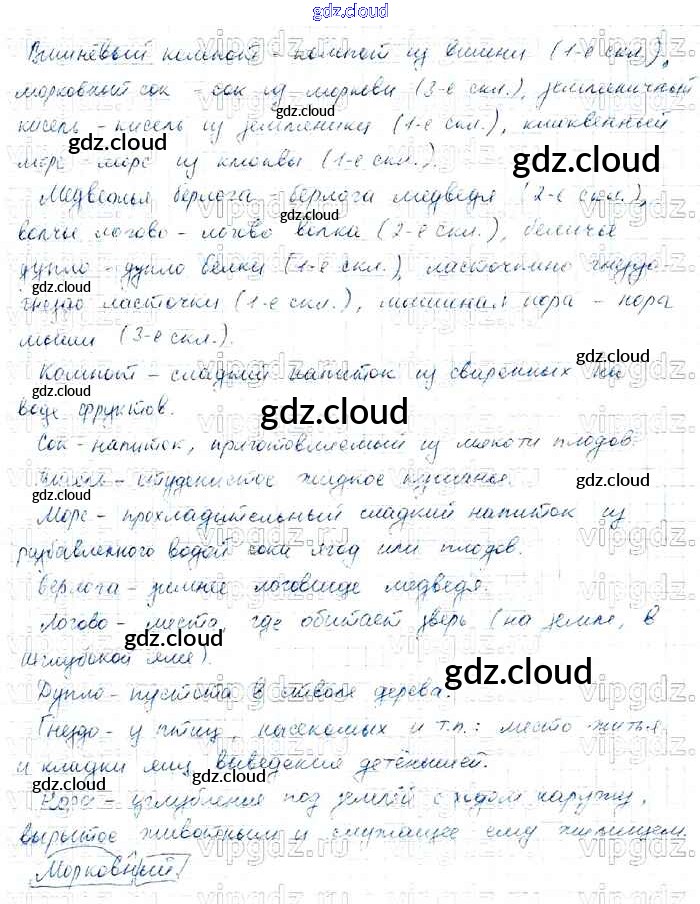 gdz.cloud
Вишнёвый компот - компот из вишни (1-е скл.),
морковный сок - сок из моркови (3-е скл.), земляничный
gdz.cloud
кисель - кисель из земляники (1-е скл.), клюквенный
gdz.cloud
морс - морс из клюквы (1-е скл.).
gdz.cloud
Медвежья берлога - берлога медведя (2-е скл.),
gdz.cloud
волчье логово - логово волка (2-е скл.), беличье
дупло - дупло белки (1-е скл.), ласточкино гнездо -
gdz.cloud
гнездо ласточки (1-е скл.), мышиная нора - нора
мыши (3-е скл.).
gdz.cloud
Компот - сладкий напиток из сваренных на
gdz.cloud
воде фруктов.
gdz.cloud
Сок - напиток, приготовляемый из мякоти плодов.
Кисель - студенистое жидкое кушанье.
gdz.cloud
gdz.cloud
Морс - прохладительный сладкий напиток из
разбавленного водой сока ягод или плодов.
Берлога - зимнее логовище медведя.
gdz.cloud
Логово - место, где обитает зверь (на земле, в
gdz.cloud
неглубокой яме).
gdz.cloud
Дупло - пустота в стволе дерева.
Гнездо - у птиц, насекомых и т.п.: место житья
gdz.cloud
и кладки яиц, выведения детёнышей.
gdz.cloud
gdz.cloud
Нора - углубление под землёй с ходом наружу,
вырытое животным и служащее ему жилищем.
Морковный